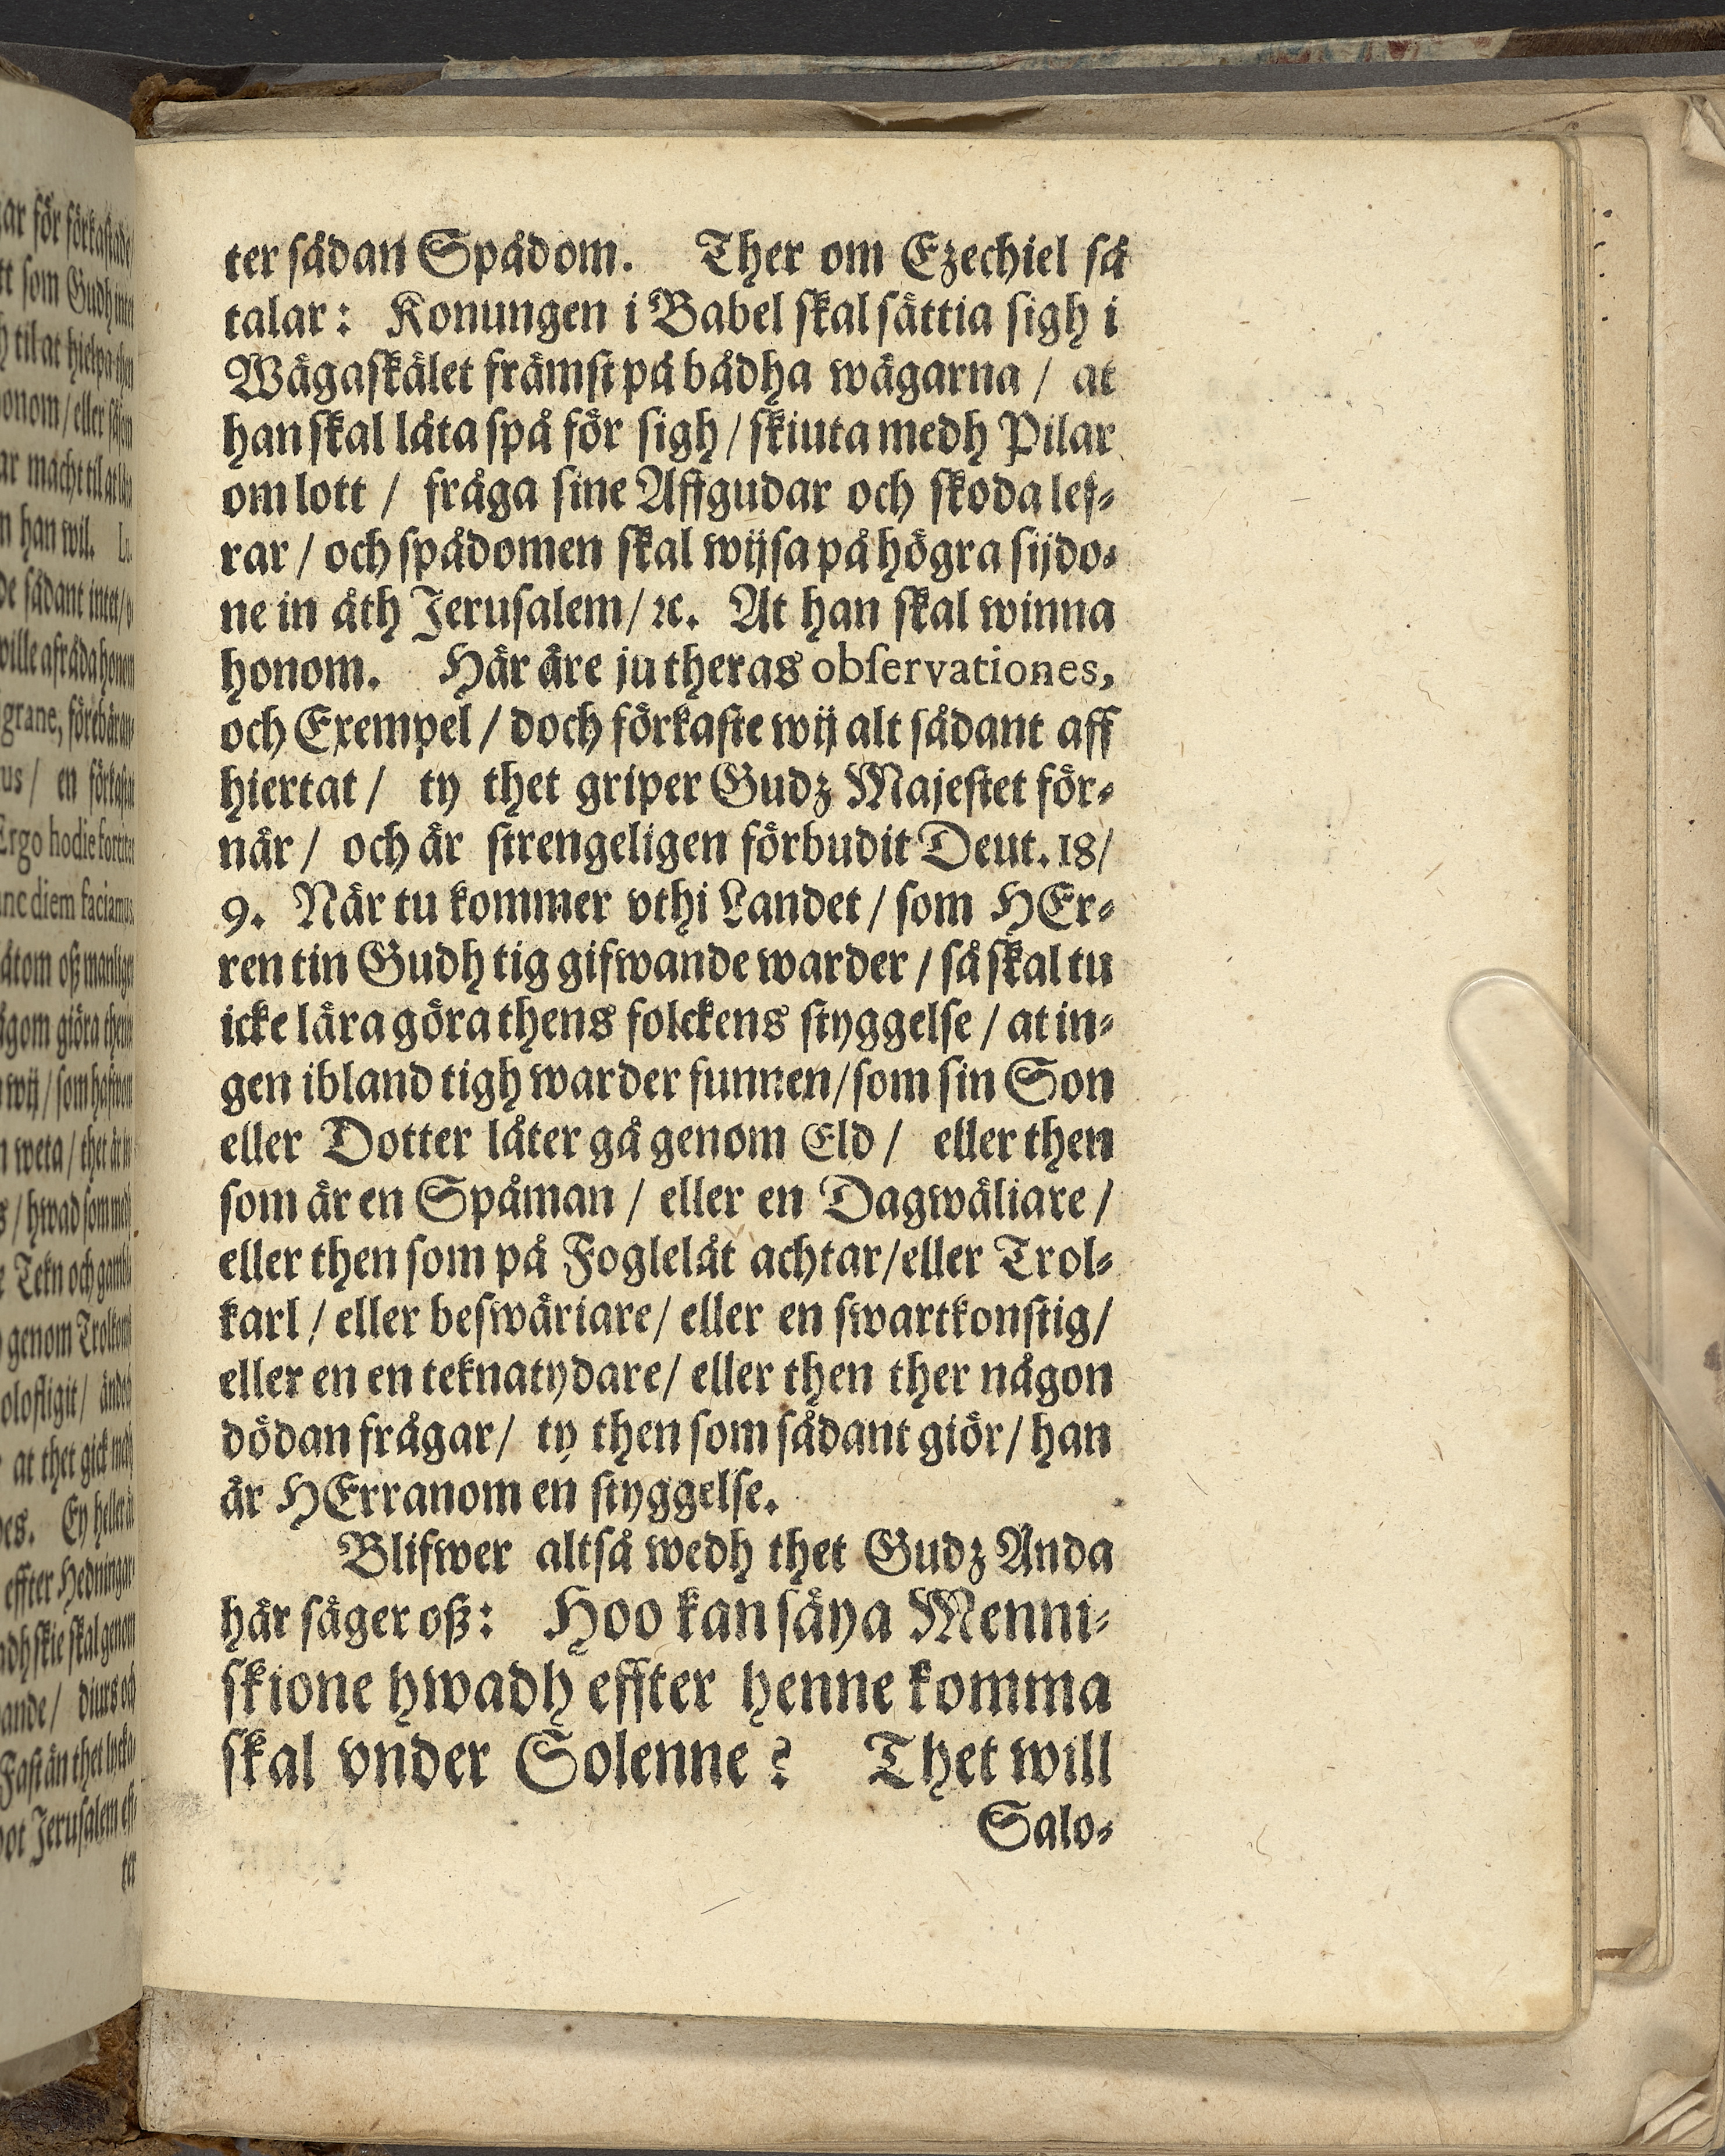 ter sådan Spådom. Ther om Ezechiel så
talar: Konungen i Babel skal sättia sigh i
Wägaskälet främst på bådha wägarna / at
han skal låta spå för sigh / skiuta medh Pilar
om lott / fråga sine Affgudar och skoda lef-
rar / och spådomen skal wijsa på högra sijdo-
ne in åth Jerusalem / ꝛc. At han skal winna
honom. Här äre ju theras observationes,
och Exempel / doch förkaste wij alt sådant aff
hiertat / ty thet griper Gudz Majestet för-
när / och är strengeligen förbudit Deut. 18/
9. När tu kommer vthi Landet / som HEr-
ren tin Gudh tig gifwande warder / så skal tu
icke lära göra thens folckens styggelse / at in-
gen ibland tigh warder funnen / som sin Son
eller Dotter låter gå genom Eld / eller then
som är en Spåman / eller en Dagwäliare /
eller then som på Foglelåt achtar / eller Trol-
karl / eller beswäriare / eller en swartkonstig /
eller en en teknatydare / eller then ther någon
dödan frågar / ty then som sådant giör / han
är HErranom en styggelse.
Blifwer altså wedh thet Gudz Anda
här säger oß: Hoo kan säya Menni-
skione hwadh effter henne komma
skal vnder Solenne? Thet will
Salo-